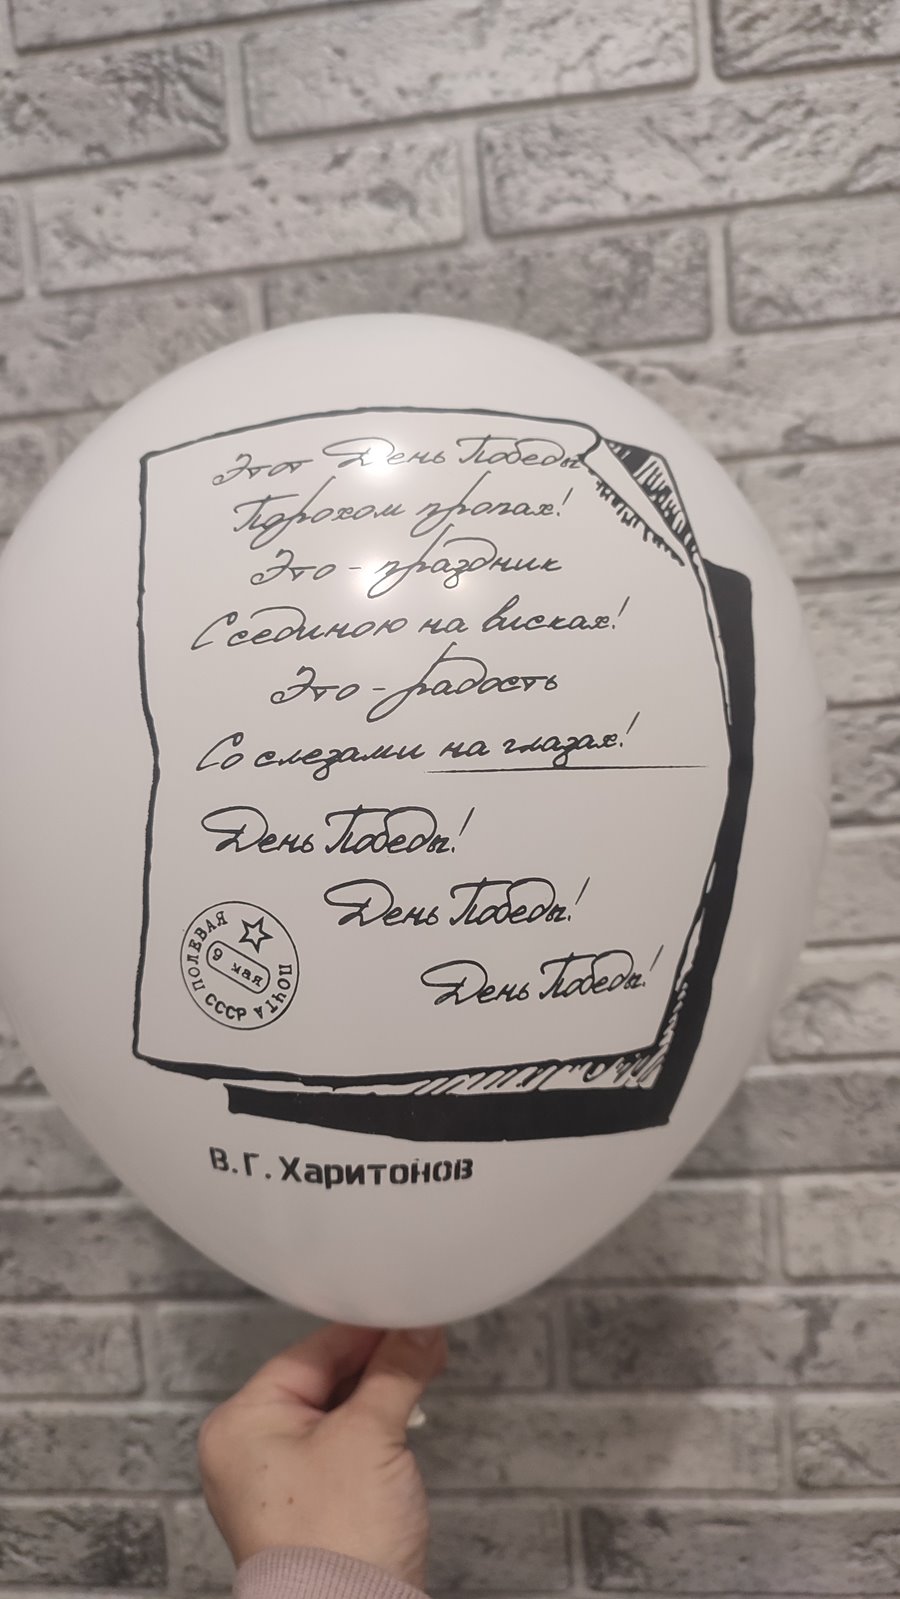 Этот День Победы
Порохом пропах!
Это - праздник
С сединою на висках!
Это - радость
Со слезами на глазах!
День Победы!
День Победы!
День Победы!
ПОЛЕВАЯ ПОЧТА СССР
9 мая
В.Г. Харитонов